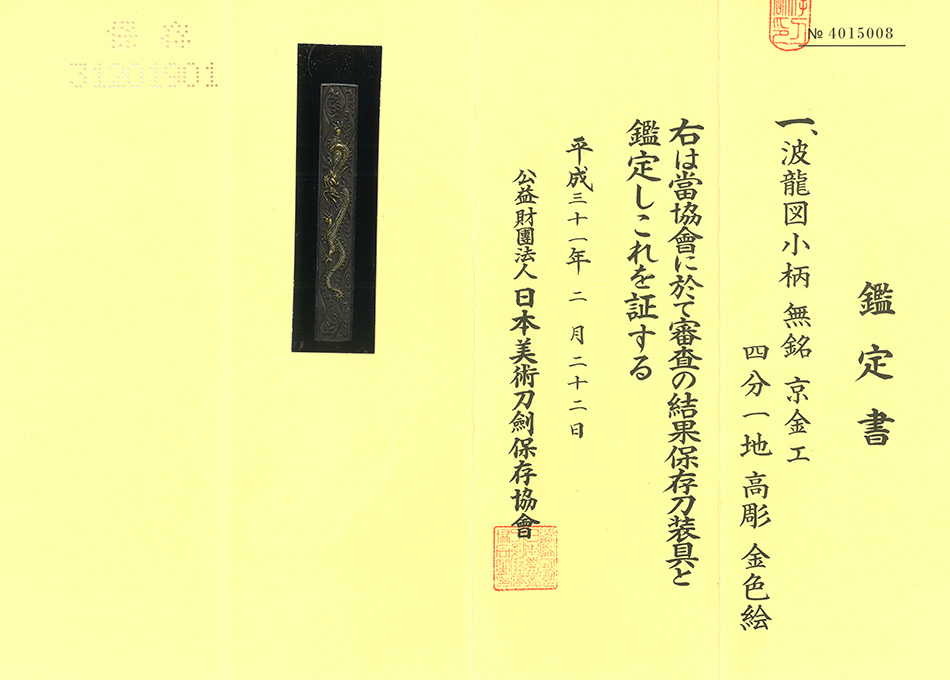 № 4015008
鑑定書
一、波龍図小柄 無銘 京金工
四分一地 高彫 金色絵
右は當協會に於て審査の結果保存刀装具と
鑑定しこれを証する
平成三十一年 二 月 二十二日
公益財團法人 日本美術刀劍保存協會
保存
31201901